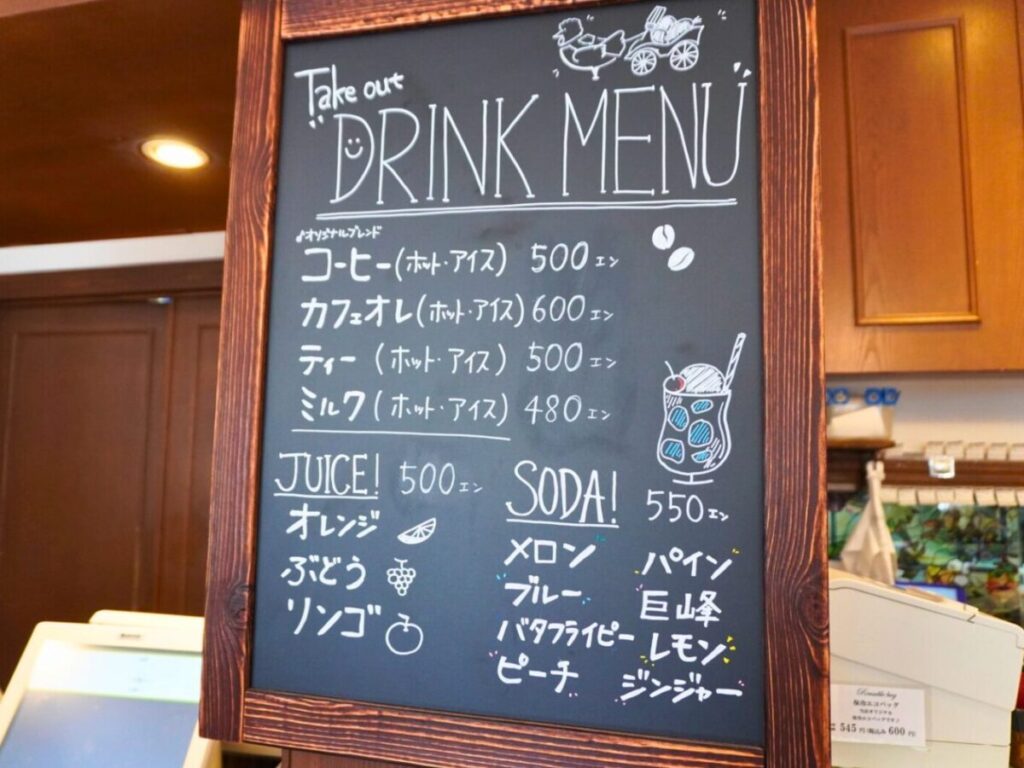 Take out
DRINK MENU
♪オリジナルブレンド
コーヒー(ホット・アイス) 500エン
カフェオレ(ホット・アイス) 600エン
ティー (ホット・アイス) 500エン
ミルク(ホット・アイス) 480エン
JUICE! 500エン
オレンジ
ぶどう
リンゴ
SODA! 550エン
メロン パイン
ブルー 巨峰
バタフライピー レモン
ピーチ ジンジャー
保冷エコバッグ
545円(税込み600円)